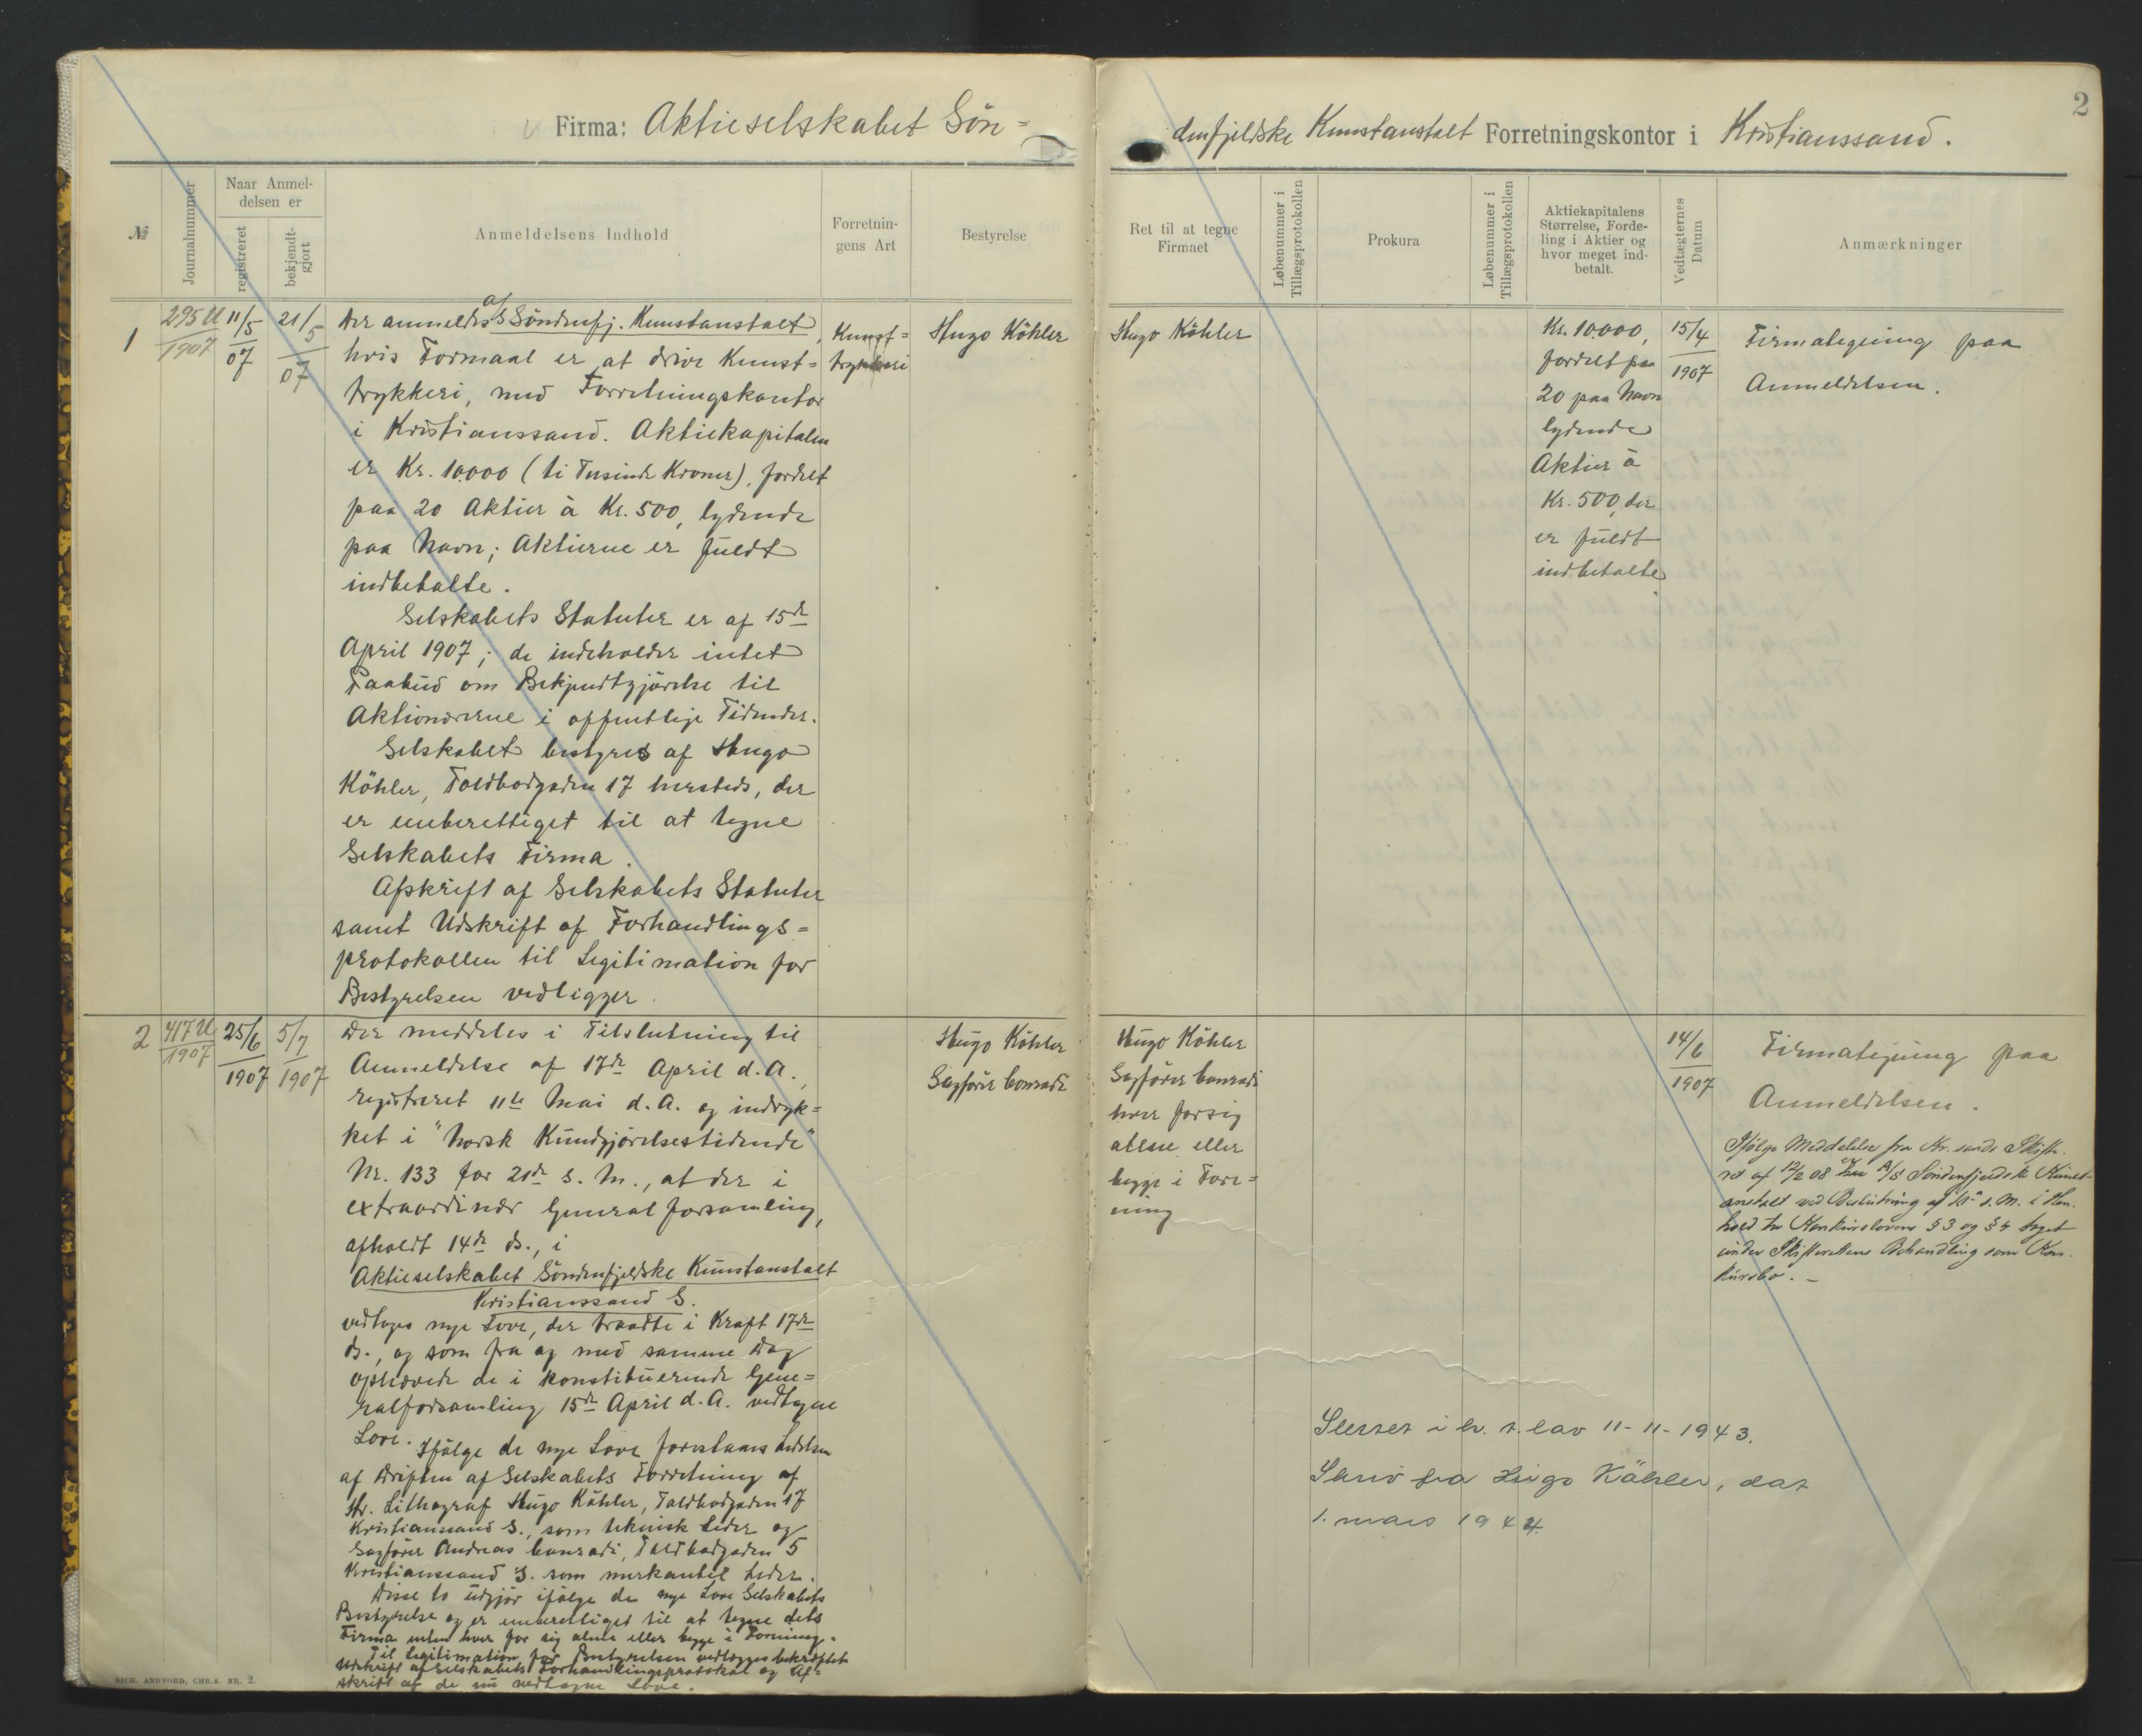 2
Firma: Aktieselskabet Sön=
denfjeldske Kunstanstalt Forretningskontor i Kristianssand.
№
Journalnummer
Naar Anmel-
delsen er
registreret
bekjendt-
gjort
Anmeldelsens Indhold
Forretnin-
gens Art
Bestyrelse
Ret til at tegne
Firmaet
Løbenummer i
Tillægsprotokollen
Prokura
Løbenummer i
Tillægsprotokollen
Aktiekapitalens
Størrelse, Forde-
ling i Aktier og
hvor meget ind-
betalt.
Vedtægternes
Datum
Anmærkninger
1
295 U
1907
11/5
07
21/5
07
Der anmeldes a/s Söndenfj. Kunstanstalt,
hvis Formaal er at drive Kunst=
trykkeri, med Forretningskontor
i Kristianssand. Aktiekapitalen
er Kr. 10.000 (ti Tusinde Kroner), fordelt
paa 20 Aktier à Kr. 500, lydende
paa Navn; Aktierne er fuldt
indbetalte.
Selskabets Statuter er af 15de
April 1907; de indeholder intet
Paabud om Bekjendtgjörelse til
Aktionærerne i offentlige Tidender.
Selskabet bestyres af Hugo
Köhler, Toldbodgaden 17 hersteds, der
er eneberettiget til at tegne
Selskabets Firma.
Afskrift af Selskabets Statuter
samt Udskrift af Forhandlings=
protokollen til Legitimation for
Bestyrelsen vedligger.
Kunst=
trykkeri
Hugo Köhler
Hugo Köhler
Kr. 10.000,
fordelt paa
20 paa Navn
lydende
Aktier à
Kr. 500, der
er fuldt
indbetalte
15/4
1907
Firmategning paa
Anmeldelsen.
2
417 U
1907
25/6
1907
5/7
1907
Der meddeles i Tilslutning til
Anmeldelse af 17de April d.A.,
registreret 11te Mai d.A. og indryk=
ket i "Norsk Kundgjörelsestidende"
Nr. 133 for 21de s. M., at der i
extraordinær Generalforsamling,
afholdt 14de ds., i
Aktieselskabet Söndenfjeldske Kunstanstalt
Kristianssand S.
vedtoges nye Love, der traadte i Kraft 17de
ds., og som fra og med samme Dag
ophævede de i konstituerende Gene=
ralforsamling 15de April d.A. vedtagne
Love. Ifölge de nye Love forestaaes Ledelsen
af Driften af Selskabets Forretning af
Hr. Lithograf Hugo Köhler, Toldbodgaden 17
Kristianssand S., som teknisk Leder og
Sagförer Andreas Conradi, Toldbodgaden 5
Kristianssand S. som merkantil Leder.
Disse to udgjör ifölge de nye Love Selskabets
Bestyrelse og er eneberettiget til at tegne dets
Firma enten hver for sig alene eller begge i Forening.
Til Legitimation for Bestyrelsen vedlægges bekræftet
Udskrift af Selskabets Forhandlingsprotokol og Af=
skrift af de nu vedtagne Love.
Hugo Köhler
Sagförer Conradi
Hugo Köhler
Sagförer Conradi
hver forsig
alene eller
begge i Fore=
ning
14/6
1907
Firmategning paa
Anmeldelsen.
Ifölge Meddelelse fra Kr.sands Skifte-
ret af 12/2 08 er A/S Söndenfjeldske Kunst-
anstalt ved Beslutning af s. M. i Hen-
hold til Konkurslovens § 3 og § 4 taget
under Skifterettens Behandling som Kon-
kursbo. –
Slettet i h. t. lov 11-11-1943.
Skriv fra Hugo Köhler, dat
1. mars 1944.
RICH. ANDVORD, CHR.A. NR. 2.